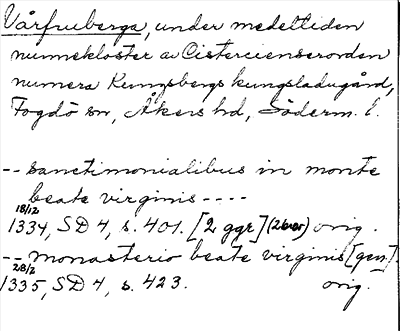 Vårfruberga, under medeltiden
nunnekloster av Cistercienserorden
numera Kungsbergs kungsladugård,
Fogdö sn, Åkers hd, Söderm. l.
-- sanctimonialibus in monte
beate virginis ----
18/12
1334, SD 4, s. 401. [2 ggr] (2 brev) orig.
-- monasterio beate virginis [gen].
28/2
1335, SD 4, s. 423. orig.